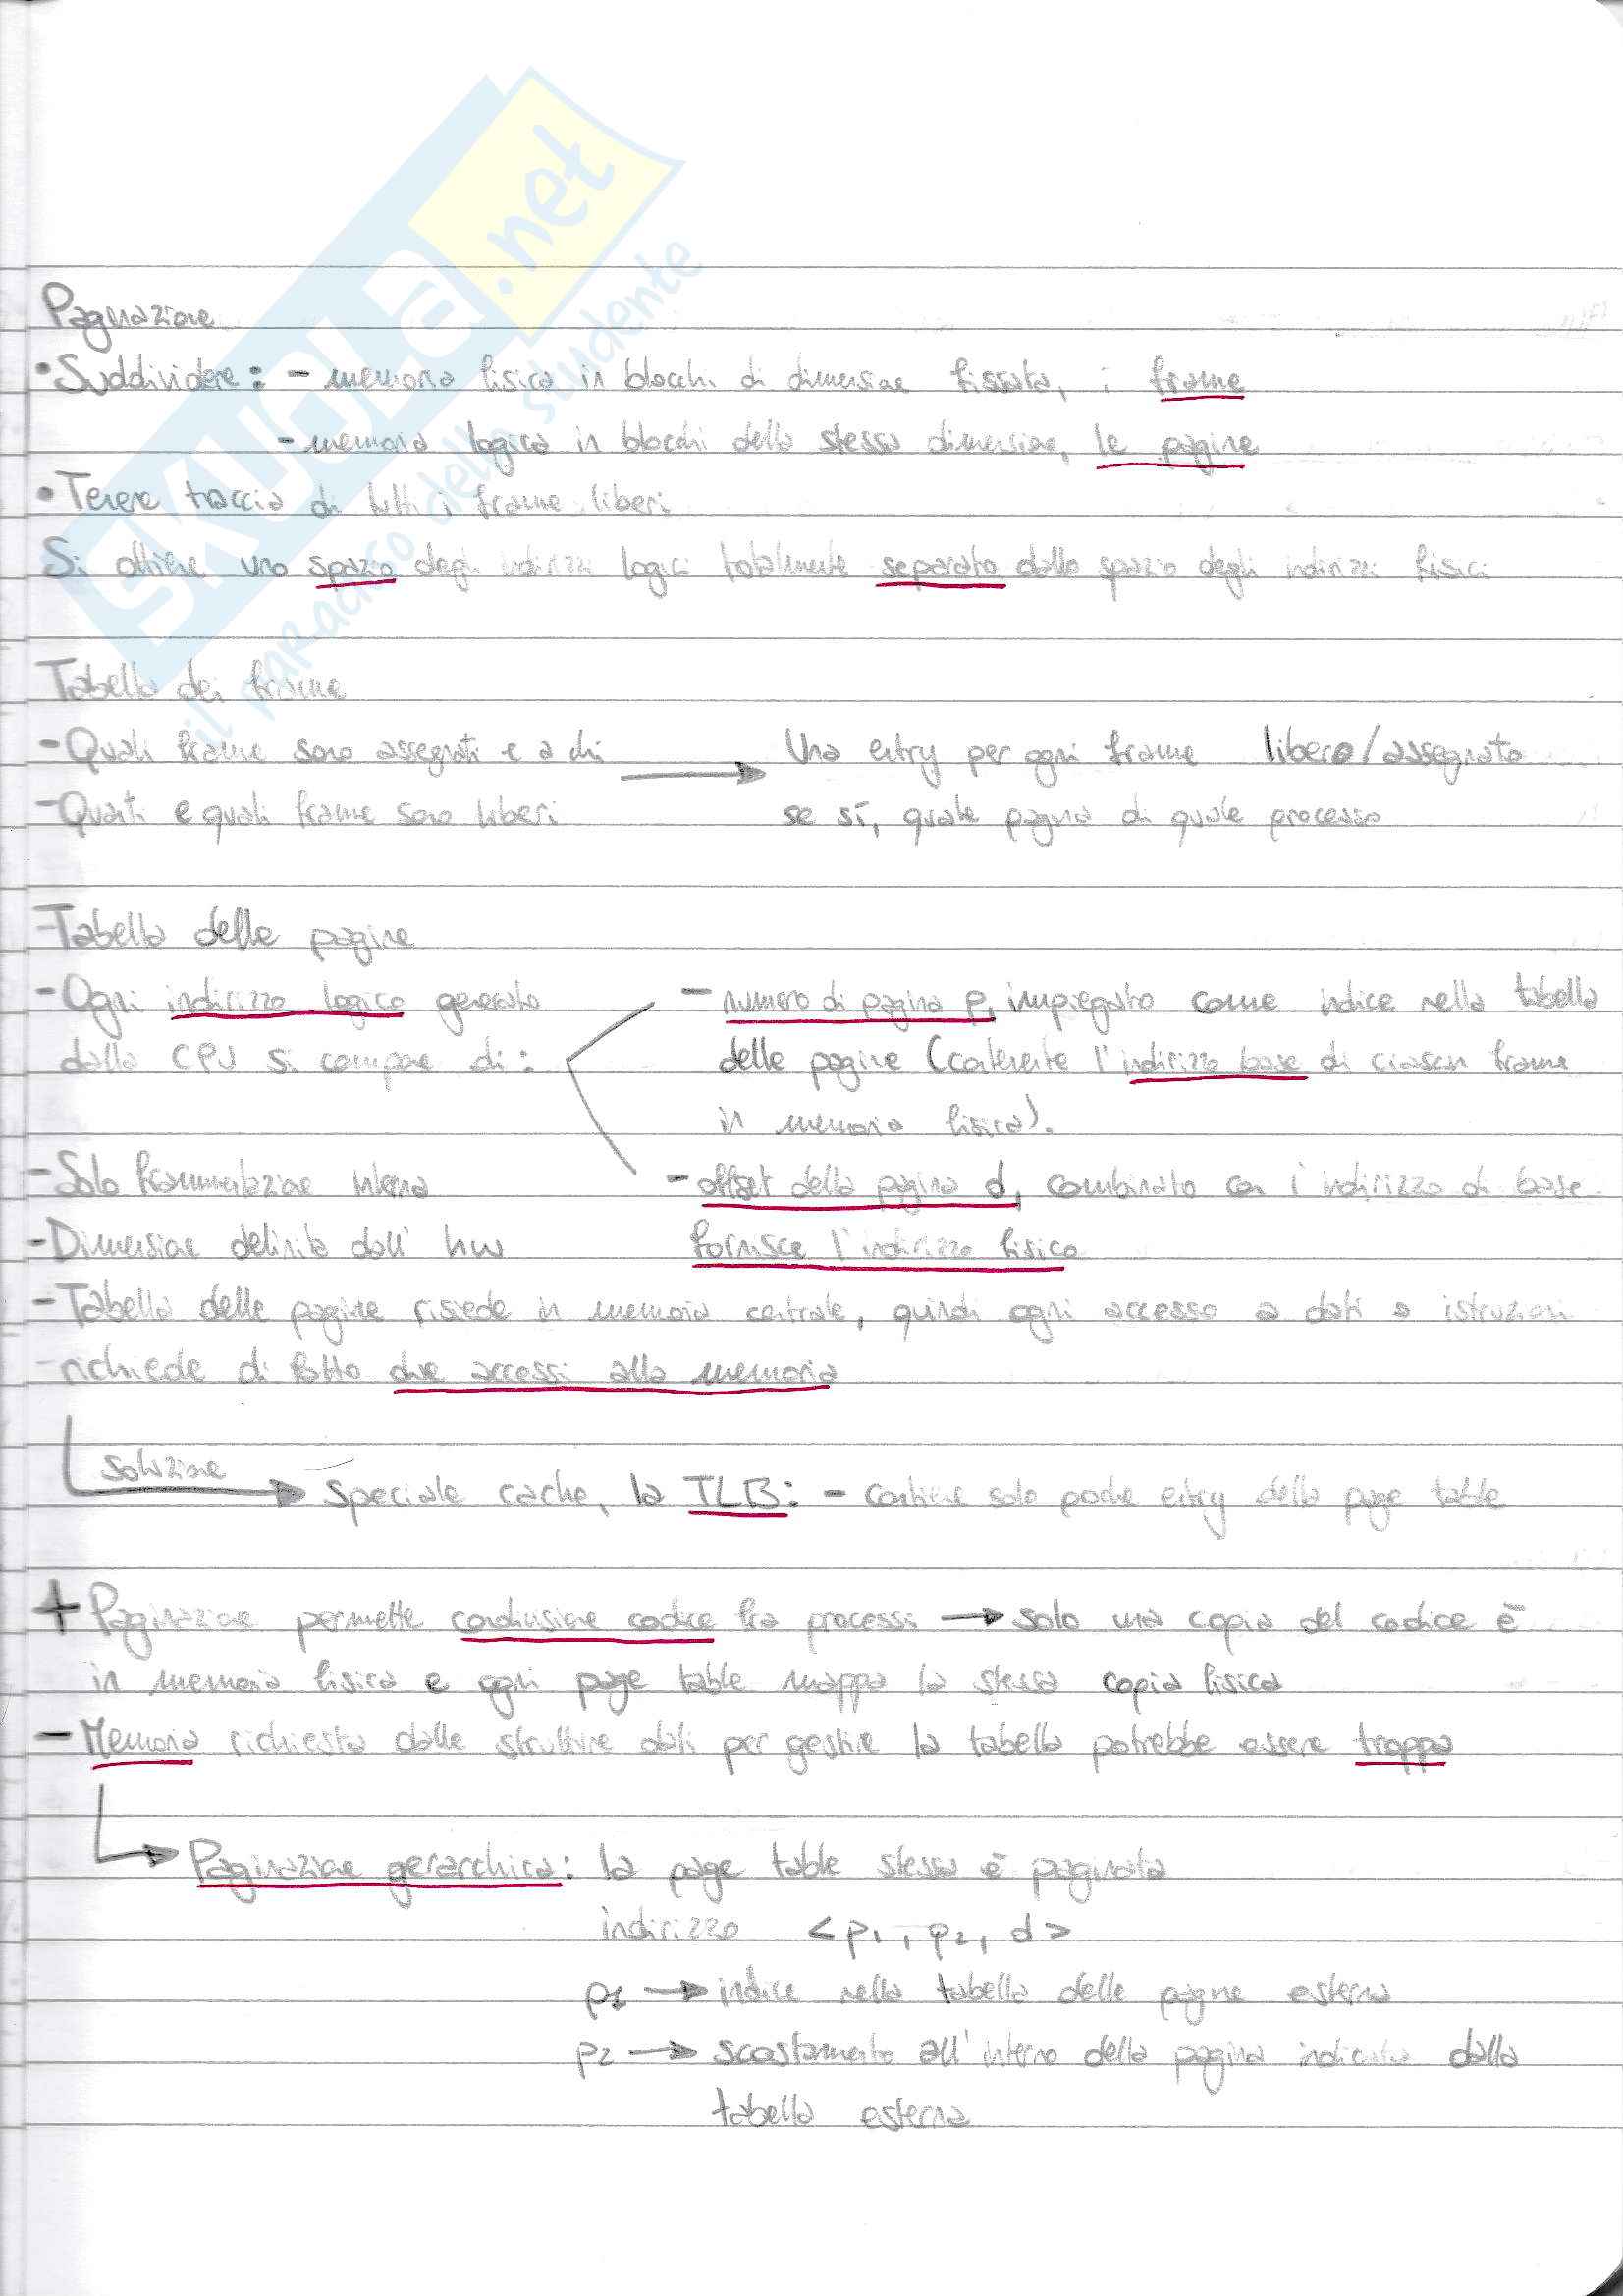 SKUOLA.net
il paradiso dello studente
Paginazione
• Suddividere: - memoria fisica in blocchi di dimensione fissata, i frame
- memoria logica in blocchi della stessa dimensione, le pagine
• Tenere traccia di tutti i frame liberi
Si ottiene uno spazio degli indirizzi logici totalmente separato dallo spazio degli indirizzi fisici
Tabella dei frame
- Quali frame sono assegnati e a chi → Una entry per ogni frame libero/assegnato
- Quanti e quali frame sono liberi se sì, quale pagina di quale processo
Tabella delle pagine
- Ogni indirizzo logico generato - numero di pagina p, impiegato come indice nella tabella
dalla CPU si compone di: delle pagine (contenente l'indirizzo base di ciascun frame
in memoria fisica).
- Solo frammentazione interna - offset della pagina d, combinato con l'indirizzo di base
- Dimensione definita dall'hw fornisce l'indirizzo fisico
- Tabella delle pagine risiede in memoria centrale, quindi ogni accesso a dati o istruzioni
richiede di fatto due accessi alla memoria
soluzione → Speciale cache, la TLB: - contiene solo poche entry della page table
+ Paginazione permette condivisione codice fra processi → solo una copia del codice è
in memoria fisica e ogni page table mappa la stessa copia fisica
- Memoria richiesta dalle strutture dati per gestire la tabella potrebbe essere troppa
→ Paginazione gerarchica: la page table stessa è paginata
indirizzo <p1, p2, d>
p1 → indice nella tabella delle pagine esterna
p2 → scostamento all'interno della pagina indicata dalla
tabella esterna